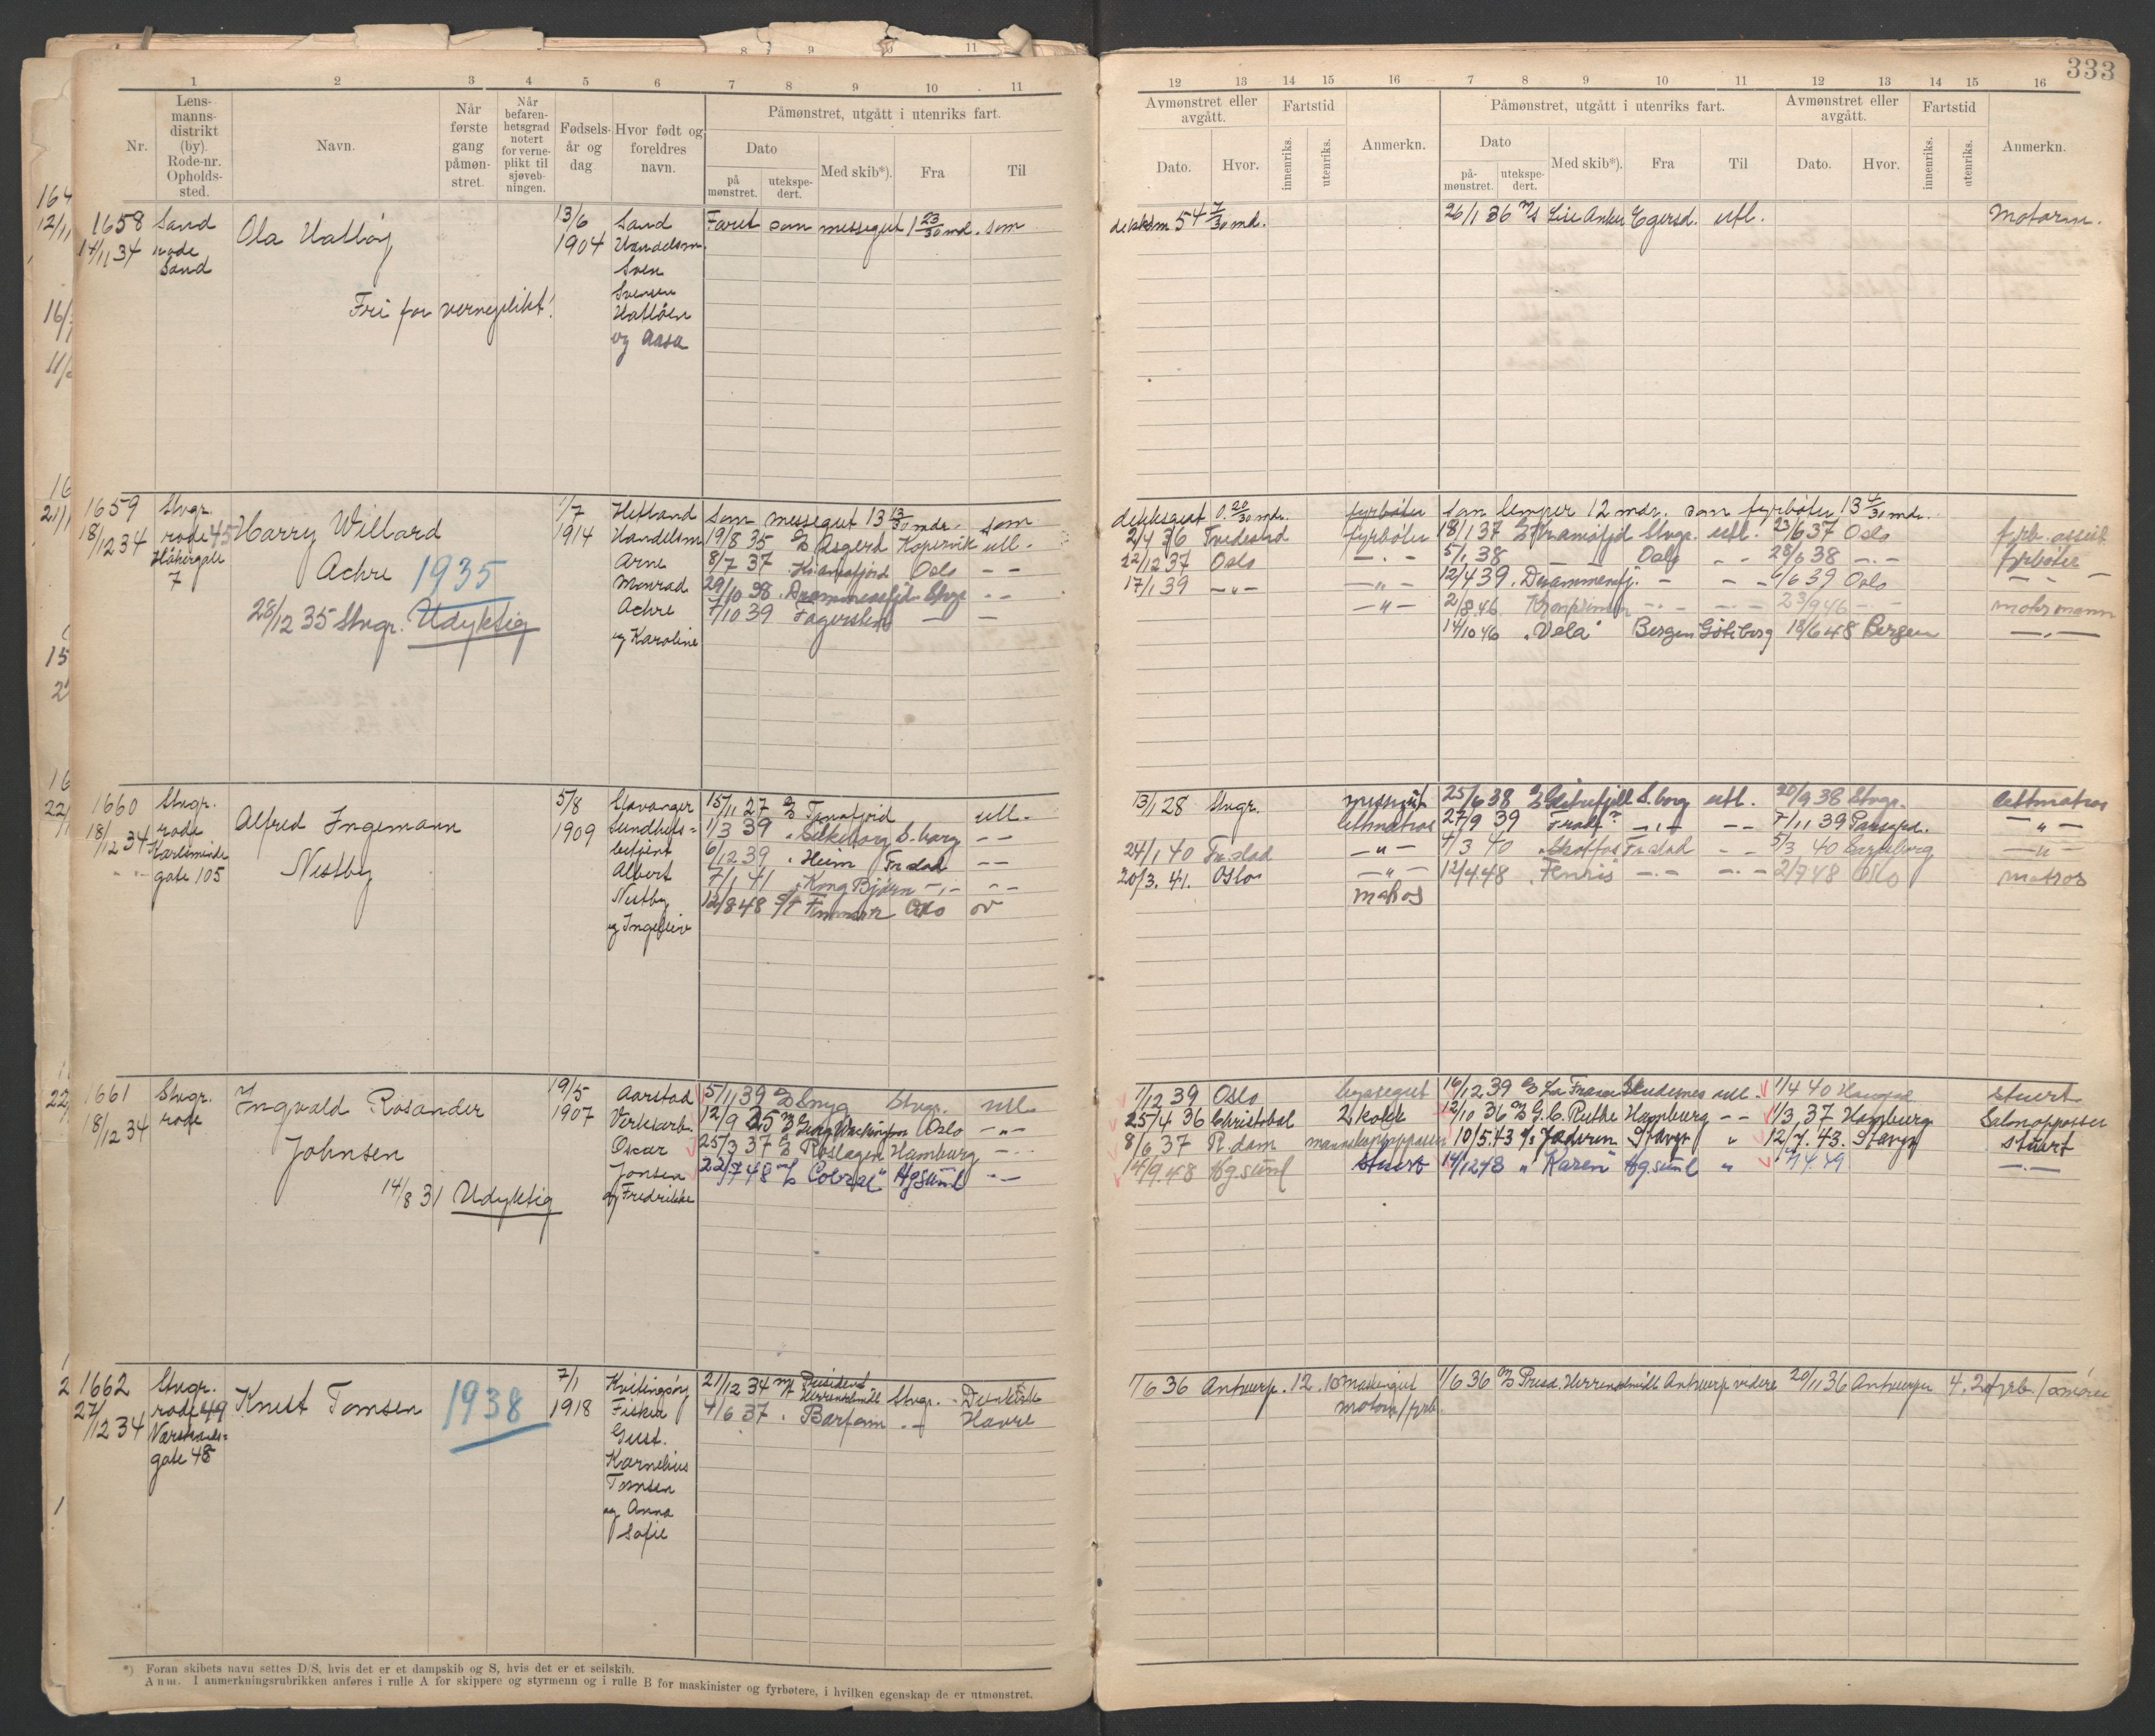 333
1 2 3 4 5 6 7 8 9 10 11
Nr.
Lens-
manns-
distrikt
(by).
Rode-nr.
Opholds-
sted.
Navn.
Når
første
gang
påmøn-
stret.
Når
befaren-
hetsgrad
notert
for verne-
plikt til
sjøveb-
ningen.
Fødsels-
år og
dag
Hvor født og
foreldres
navn.
Påmønstret, utgått i utenriks fart.
Dato
på
mønstret.
utekspe-
dert.
Med skib*).
Fra
Til
12 13 14 15 16 7 8 9 10 11 12 13 14 15 16
Avmønstret eller
avgått.
Dato.
Hvor.
Fartstid
innenriks.
utenriks.
Anmerkn.
Påmønstret, utgått i utenriks fart.
Dato
på-
mønstret.
utekspe-
dert.
Med skib*).
Fra
Til
Avmønstret eller
avgått.
Dato.
Hvor.
Fartstid
innenriks.
utenriks.
Anmerkn.
1658
14/11 34
Sand
rode
Sand
Ola Hatløy
Fri for verneplikt!
13/6
1904
Sand
Handelsm.
Sven
Svensen
Hatløen
og Aasa
Faret som messegut 1 23/30 md. som
dekksm 54 7/30 md.
26/1 36 M/S Lise Anker Egersd. utl.
Motorm.
1659
18/12 34
Stvgr.
rode 45
Håkergate
7
Harry Willard
Achre 1935
28/12 35 Stvgr. Udyktig
1/7
1914
Hetland
Handelsm
Arne
Monrad
Achre
og Karoline
Som messegut 13 13/30 mdr. som
19/8 35 Asgerd Kopervik utl.
8/7 37 Kr.anafjord Oslo — —
29/10 38 Drammensfjd. Stvgr — —
7/10 39 Fagersten — —
dekksgut 0. 20/30 mdr. fyrbøter
2/4 36 Tvedestrd fyrbøter
22/12 37 Oslo — " —
17/1 39 — " — — " —
— " —
som lemper 12 mdr. som fyrbøter 13 4/30 mdr.
18/1 37 Kr.anafjd Stvgr. utl. 23/6 37 Oslo fyrb. assist
5/1 38 — Oslo — — 28/6 38 — " — fyrbøter
12/4 39 Drammensfj. — — — 6/6 39 Oslo — " —
2/8 46 Kronprinsen — " — — " — 23/9 46 — " — motormann
14/10 46 "Vela" Bergen Göteborg 18/6 48 Bergen — " —
1660
18/12 34
Stvgr.
rode
Karlsminde
gate 105
Alfred Ingemann
Nestby
5/8
1909
Stavanger
Sundhets=
betjent
Albert
Nestby
og Ingeleiv
15/11 27 Tanafjord utl.
1/3 39 Silkeborg S.borg — —
6/12 39 " Heim Tr.dad — —
7/1 41 " Kong Bjørn — " — — —
12/8 48 S/T Finnmark Oslo
13/1 28 Stvgr. messegut
lettmatros
24/1 40 Tr.dad — " —
20/3. 41. Oslo — " —
matros
25/6 38 S.borg utl. 20/9 38 Stvgr. lettmatros
27/9 39 — " — — — 7/11 39 — " —
7/3 40 Tr.dad — — 5/3 40 Sarpsborg — " —
12/4 48 Fenris — " — — " — 2/7 48 Oslo matros
1661
18/12 34
Stvgr.
rode
Ingvald Rosander
Johnsen
14/8 31 Udyktig
19/5
1907
Aarstad
Verksarb.
Oscar
Jonsen
og Fredrikke
5/11 39 Snyg Stvgr. utl.
12/9 35 Georg Washington Oslo — " —
25/3 37 Roslagen Hamburg — " —
22/7 48 "Cobral" Hgsund — —
1/12 39 Oslo byssegut
25/4 36 Christobal 2 kokk
8/6 37 R.dam mannskapsoppasser
4/9. 48 Hg.sund Stuert
16/12 39 La France Skudenes utl. 1/4 40 stuert
12/10 36 G. C. Ruthe Hamburg — — 1/3 37 Hamburg Salonoppasser
10/5. 43 Jaderen Stavgr " 12/7. 43. Stavgr stuert
14/12 48 "Karen" Hg.sund " 7/4 49 — " —
1662
27/12 34
Stvgr.
rode 49
Værlands=
gate 48
Knut Tomsen 1938
7/1
1918
Kvitingsøy
Fisker
Gust.
Kornelius
Tomsen
og Anna
Sofie
21/12 34 President
Herrenschmidt Stvgr. Dunkirk
4/6 37 " Barfonn — " — Havre
1/6 36 Antwerp. 12. 10
motorm/fyrb.
1/6 36 Presd. Herrenschmidt Antwerp videre 20/11 36 Antwerpen 4. 20
*) Foran skibets navn settes D/S, hvis det er et dampskib og S, hvis det er et seilskib.
Anm. I anmerkningsrubrikken anføres i rulle A for skippere og styrmenn og i rulle B for maskinister og fyrbøtere, i hvilken egenskap de er utmønstret.